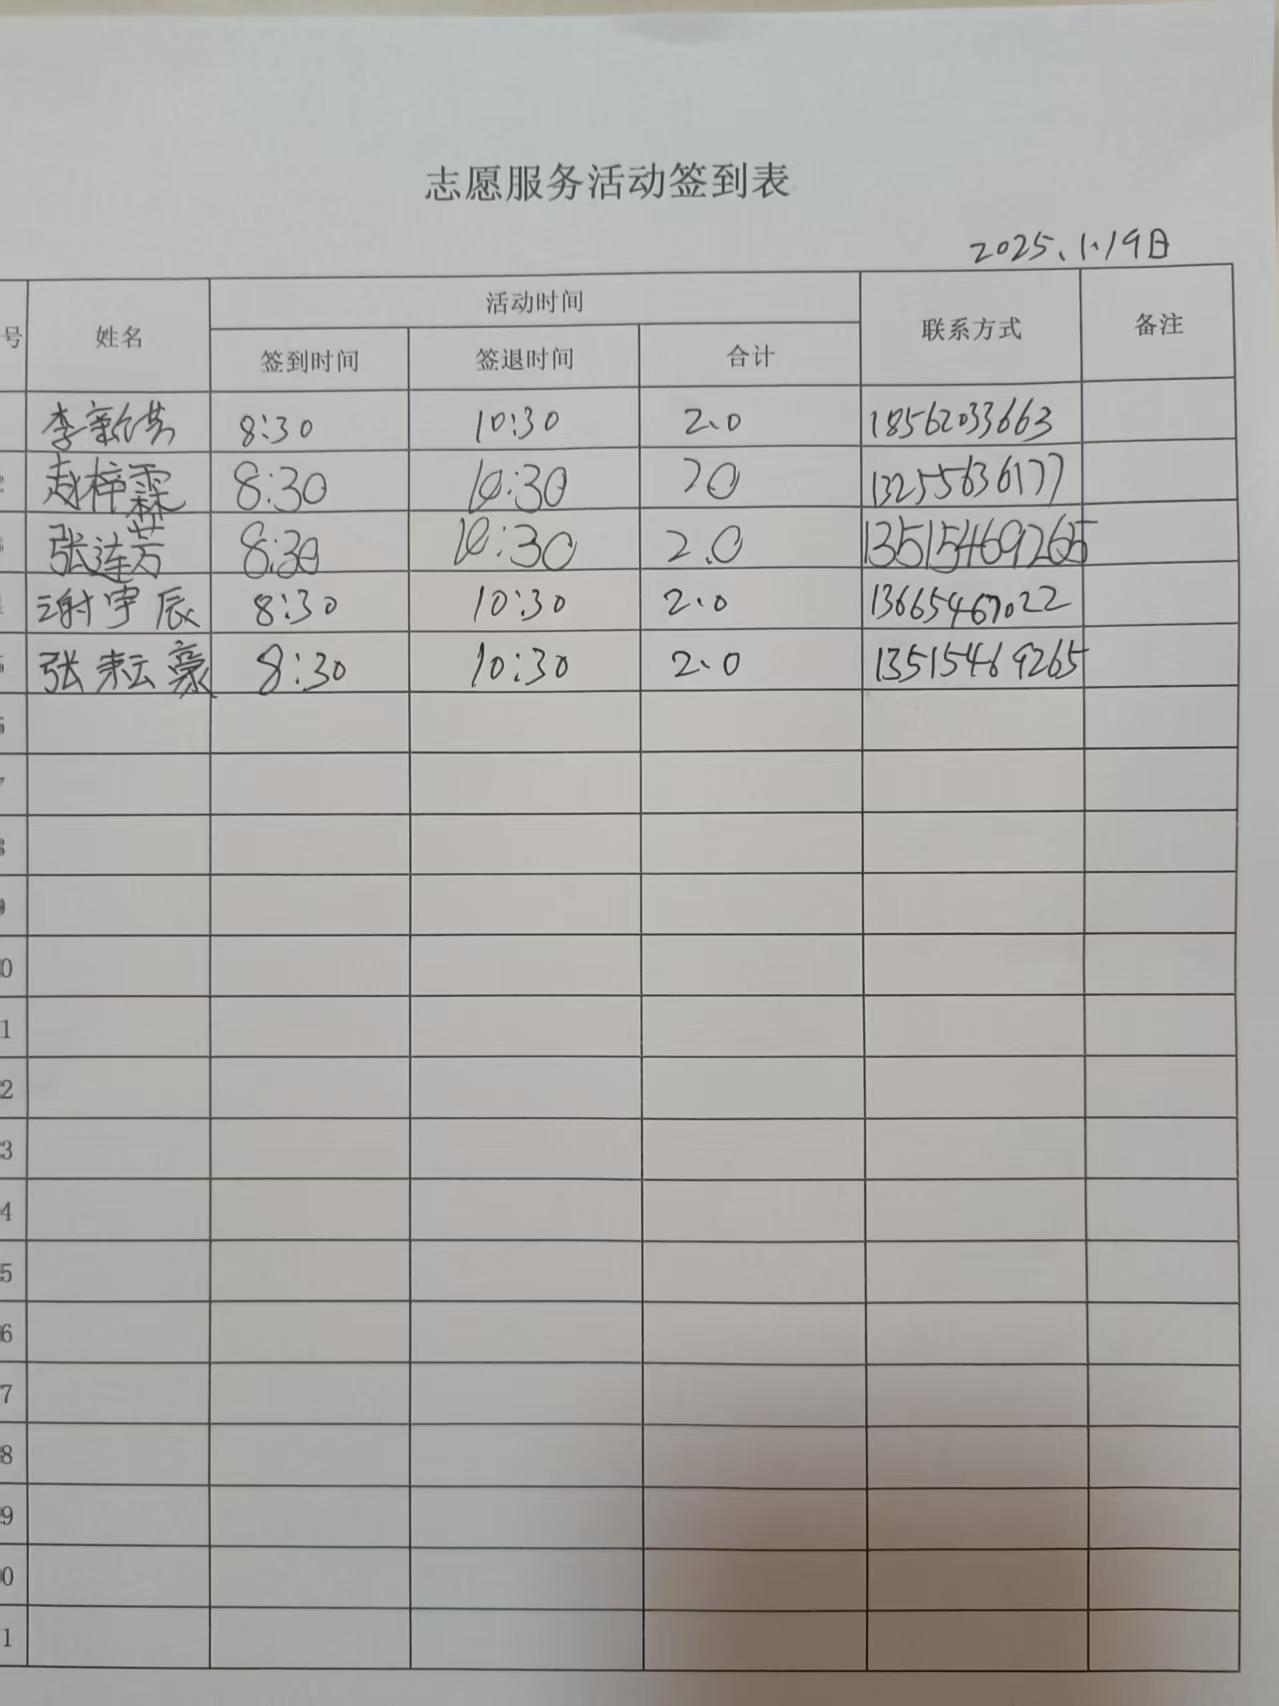 志愿服务活动签到表
2025.1.19日
号 姓名 活动时间 联系方式 备注
签到时间 签退时间 合计
李新 8:30 10:30 2.0 18562033663
2 赵梓霖 8:30 10:30 20 13255636177
3 张连芳 8:30 10:30 2.0 13515469265
4 谢宇辰 8:30 10:30 2.0 13665467022
5 张耘豪 8:30 10:30 2.0 13515469265
6
7
8
9
0
1
2
3
4
5
6
7
8
9
0
1